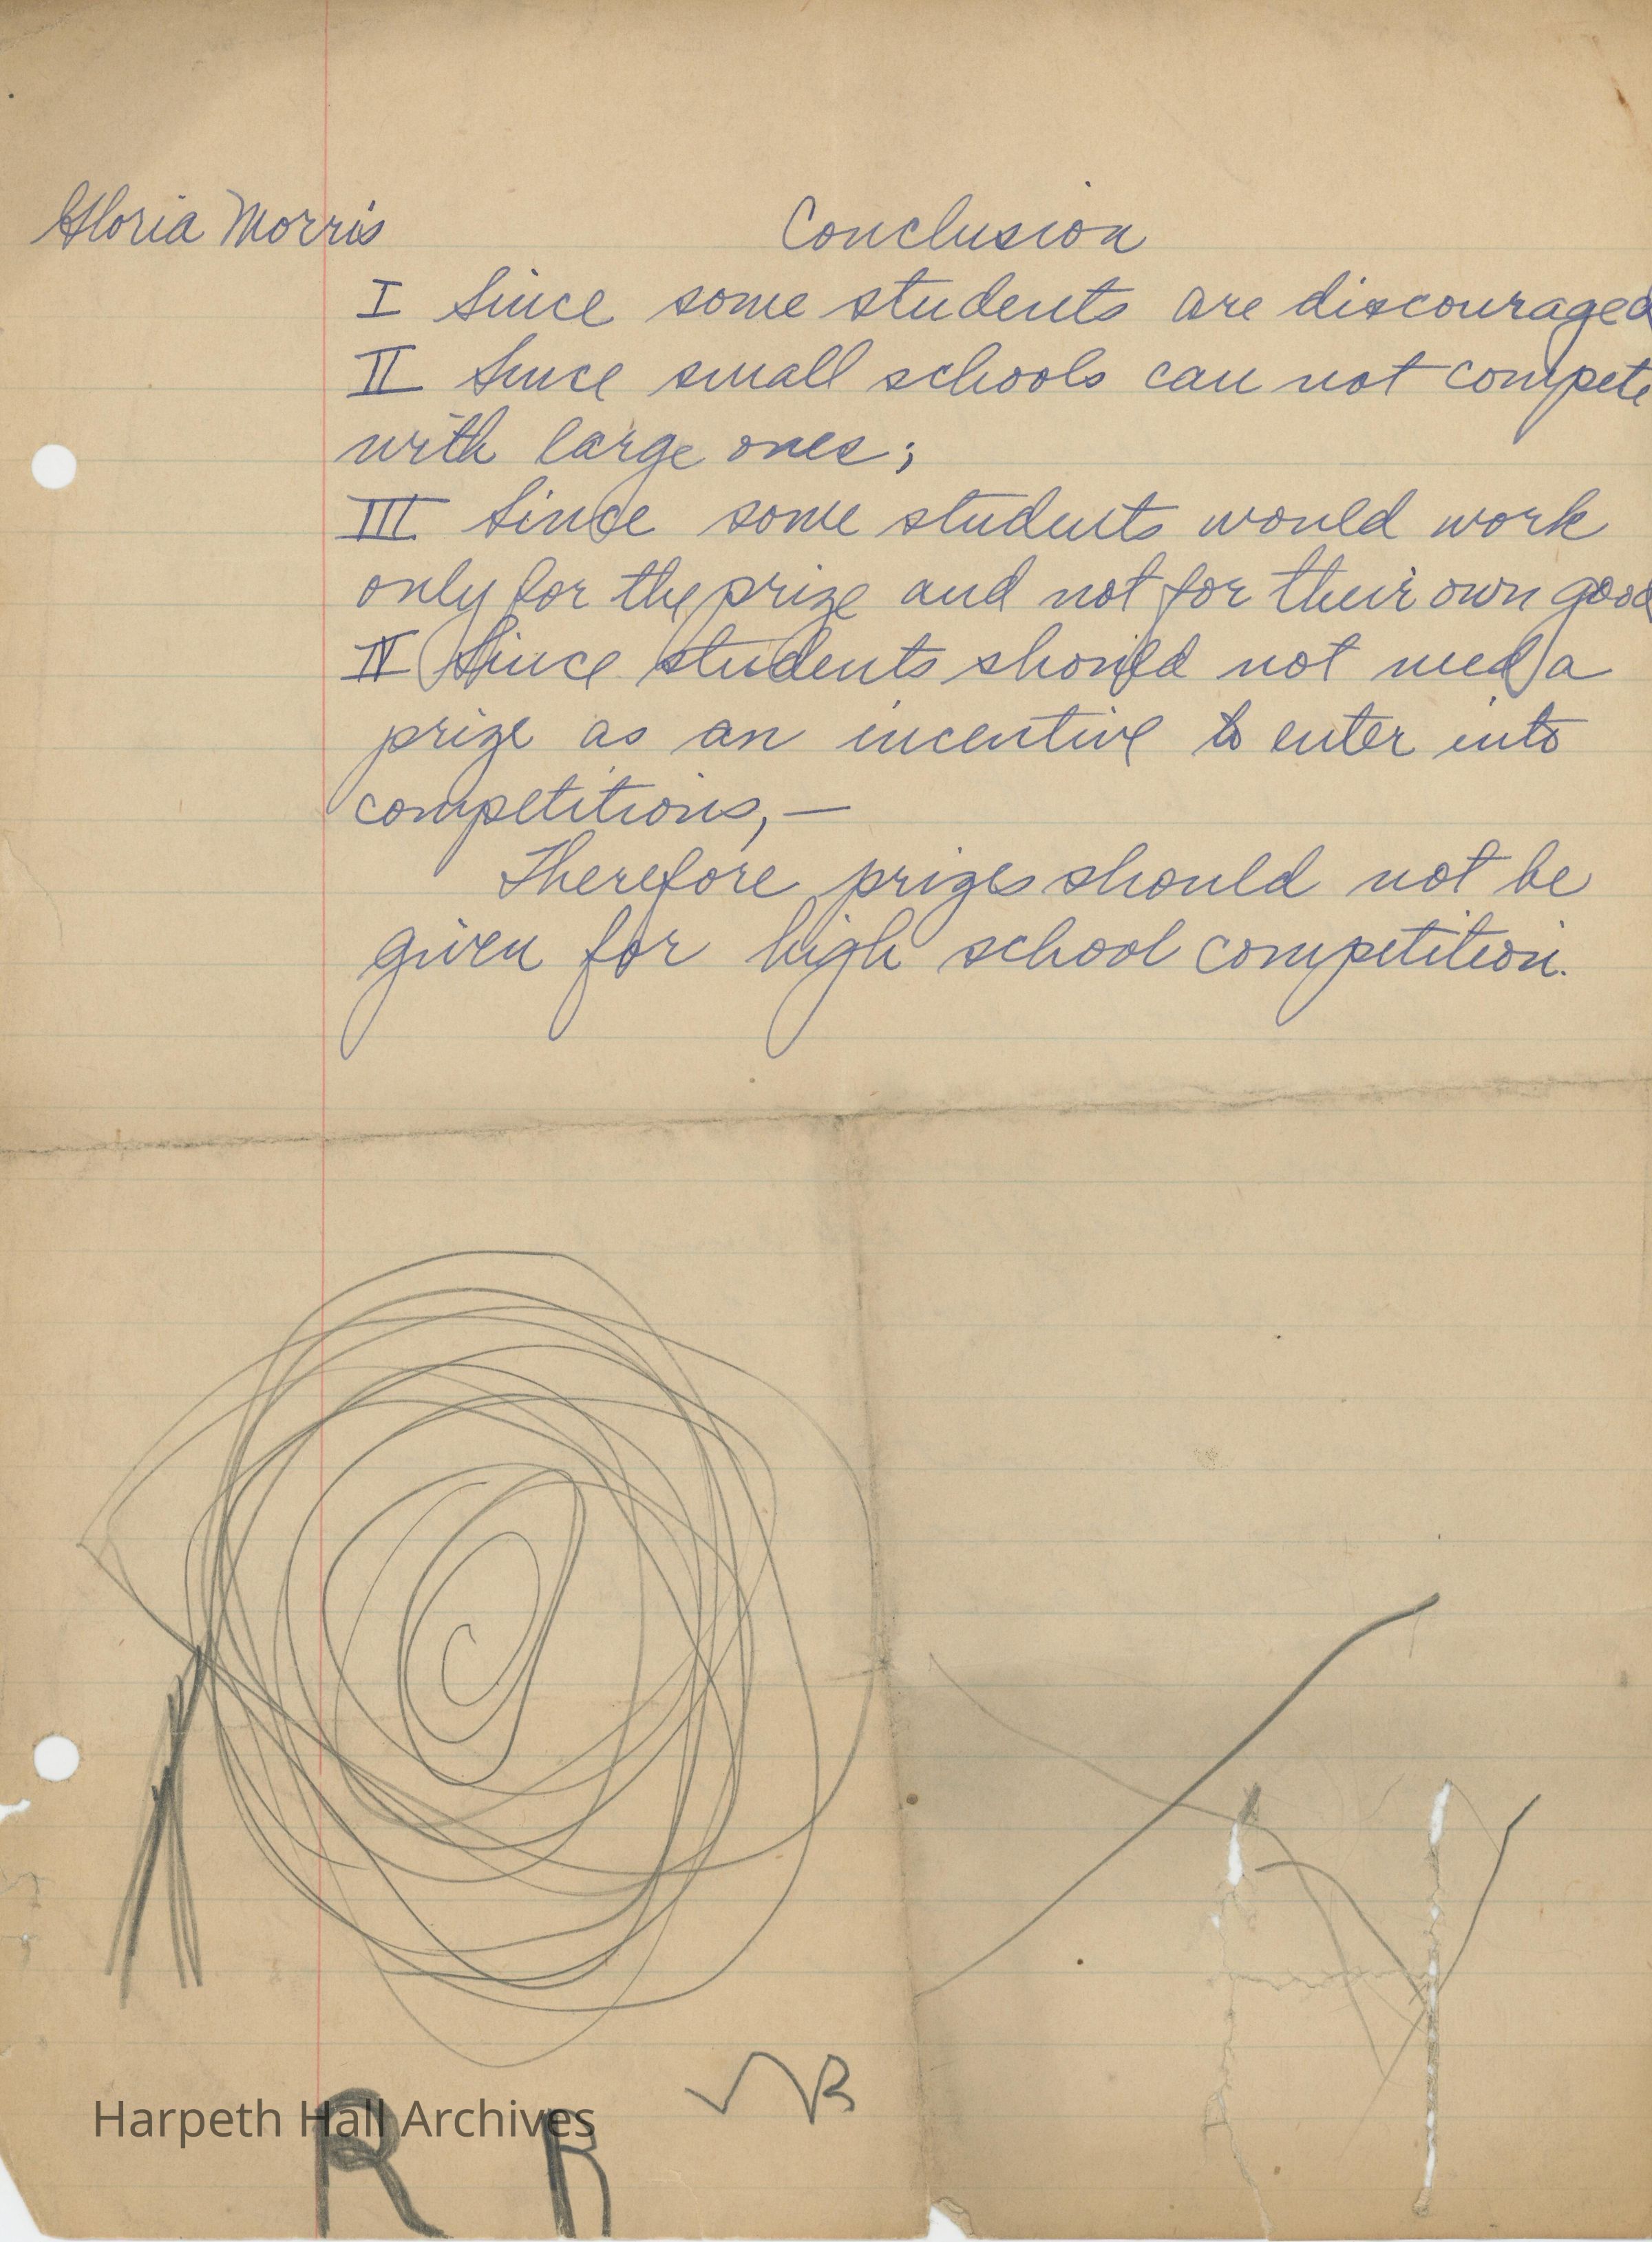 Gloria Morris
Conclusion
I Since some students are discouraged
II Since small schools can not compete
with large ones;
III Since some students would work
only for the prize and not for their own good
IV Since students should not need a
prize as an incentive to enter into
competitions, —
Therefore prizes should not be
given for high school competition.
Harpeth Hall Archives
R R